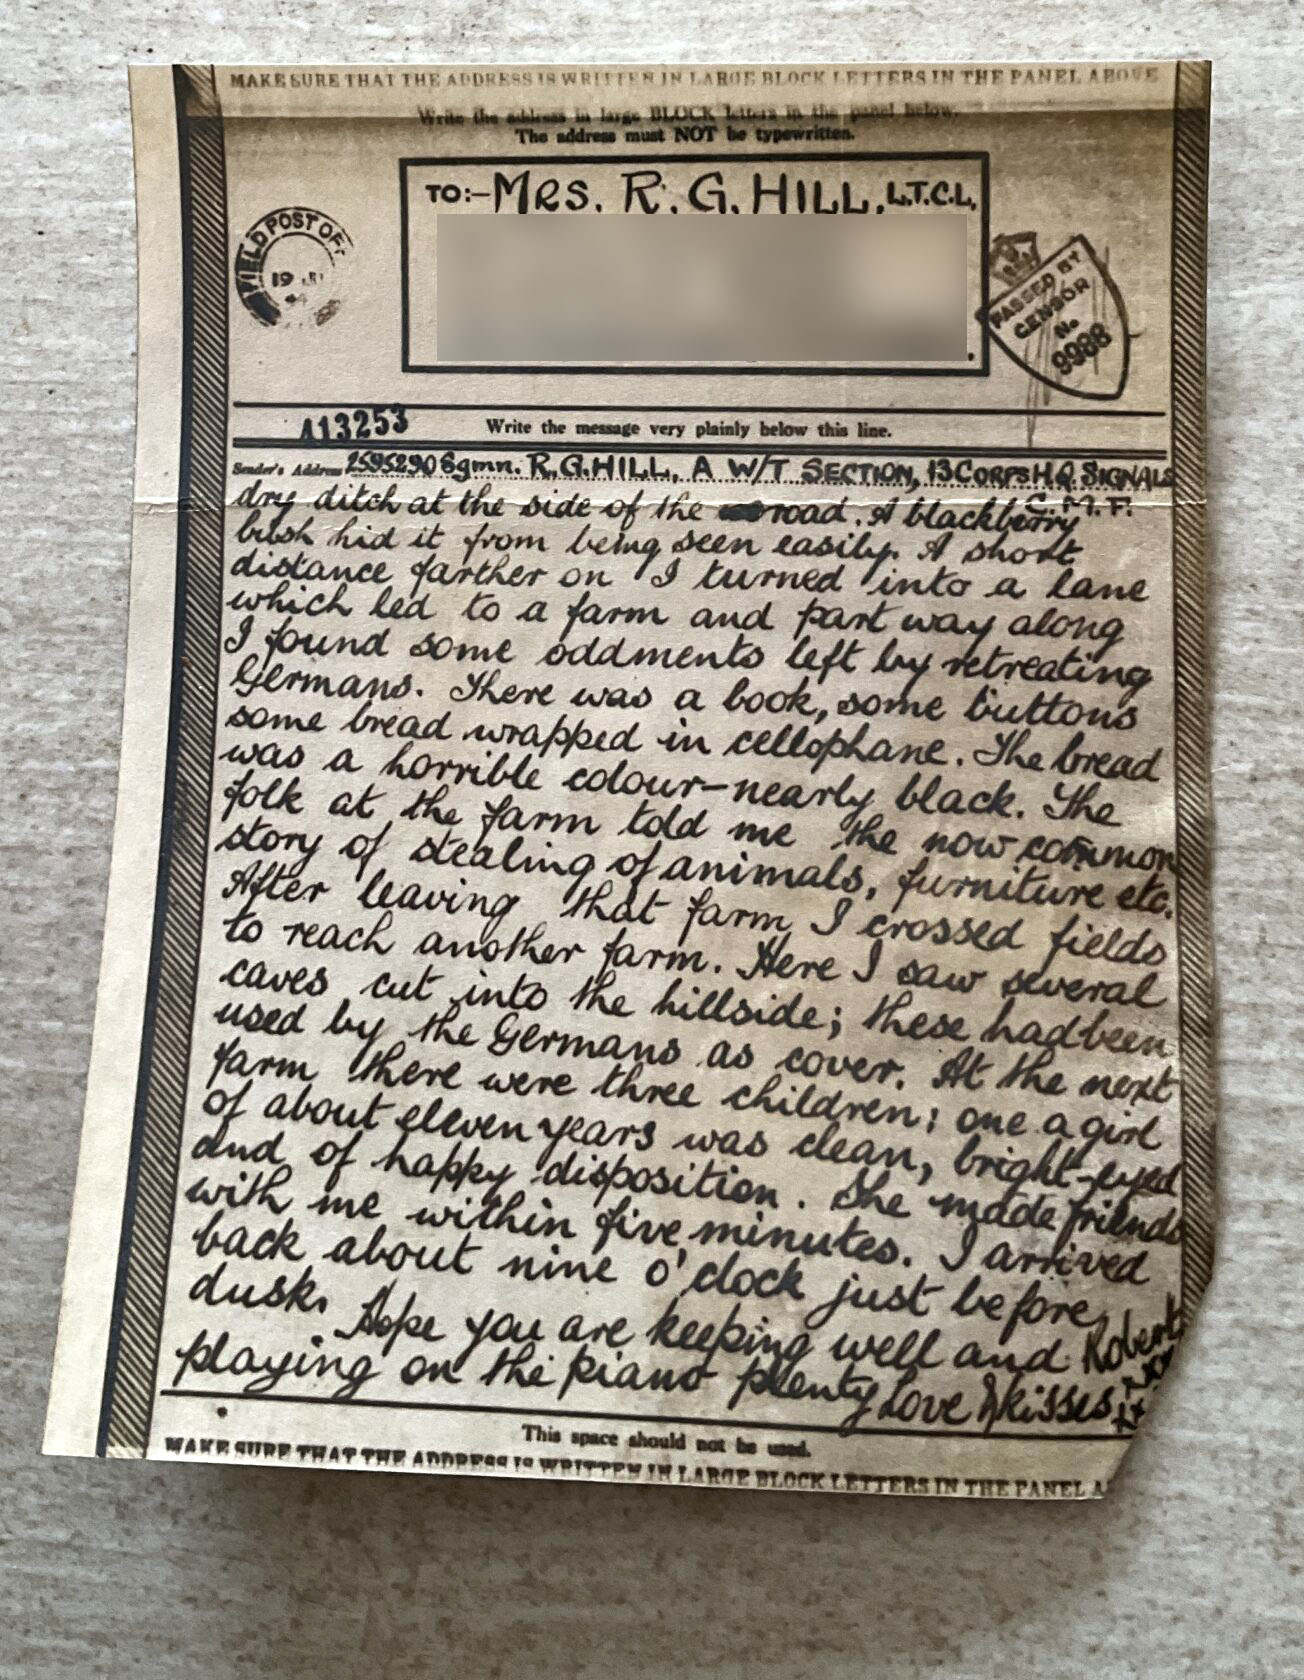 MAKE SURE THAT THE ADDRESS IS WRITTEN IN LARGE BLOCK LETTERS IN THE PANEL ABOVE
Write the address in large BLOCK letters in the panel below.
The address must NOT be typewritten.
TO:- MRS. R. G. HILL, L.T.C.L.
FIELD POST OF
19
44
PASSED BY
CENSOR
No.
9988
A13253
Write the message very plainly below this line.
Sender's Address 2595290 Sgmn. R. G. HILL, A W/T SECTION, 13 CORPS H.Q. SIGNALS
C. M. F.
dry ditch at the side of the road. A blackberry
bush hid it from being seen easily. A short
distance farther on I turned into a lane
which led to a farm and part way along
I found some oddments left by retreating
Germans. There was a book, some buttons
some bread wrapped in cellophane. The bread
was a horrible colour—nearly black. The
folk at the farm told me the now common
story of stealing of animals, furniture etc.
After leaving that farm I crossed fields
to reach another farm. Here I saw several
caves cut into the hillside; these had been
used by the Germans as cover. At the next
farm there were three children; one a girl
of about eleven years was clean, bright-eyed
and of happy disposition. She made friends
with me within five minutes. I arrived
back about nine o'clock just before
dusk. Hope you are keeping well and
playing on the piano plenty Love & kisses
Robert
xxx
xxx
This space should not be used.
MAKE SURE THAT THE ADDRESS IS WRITTEN IN LARGE BLOCK LETTERS IN THE PANEL A